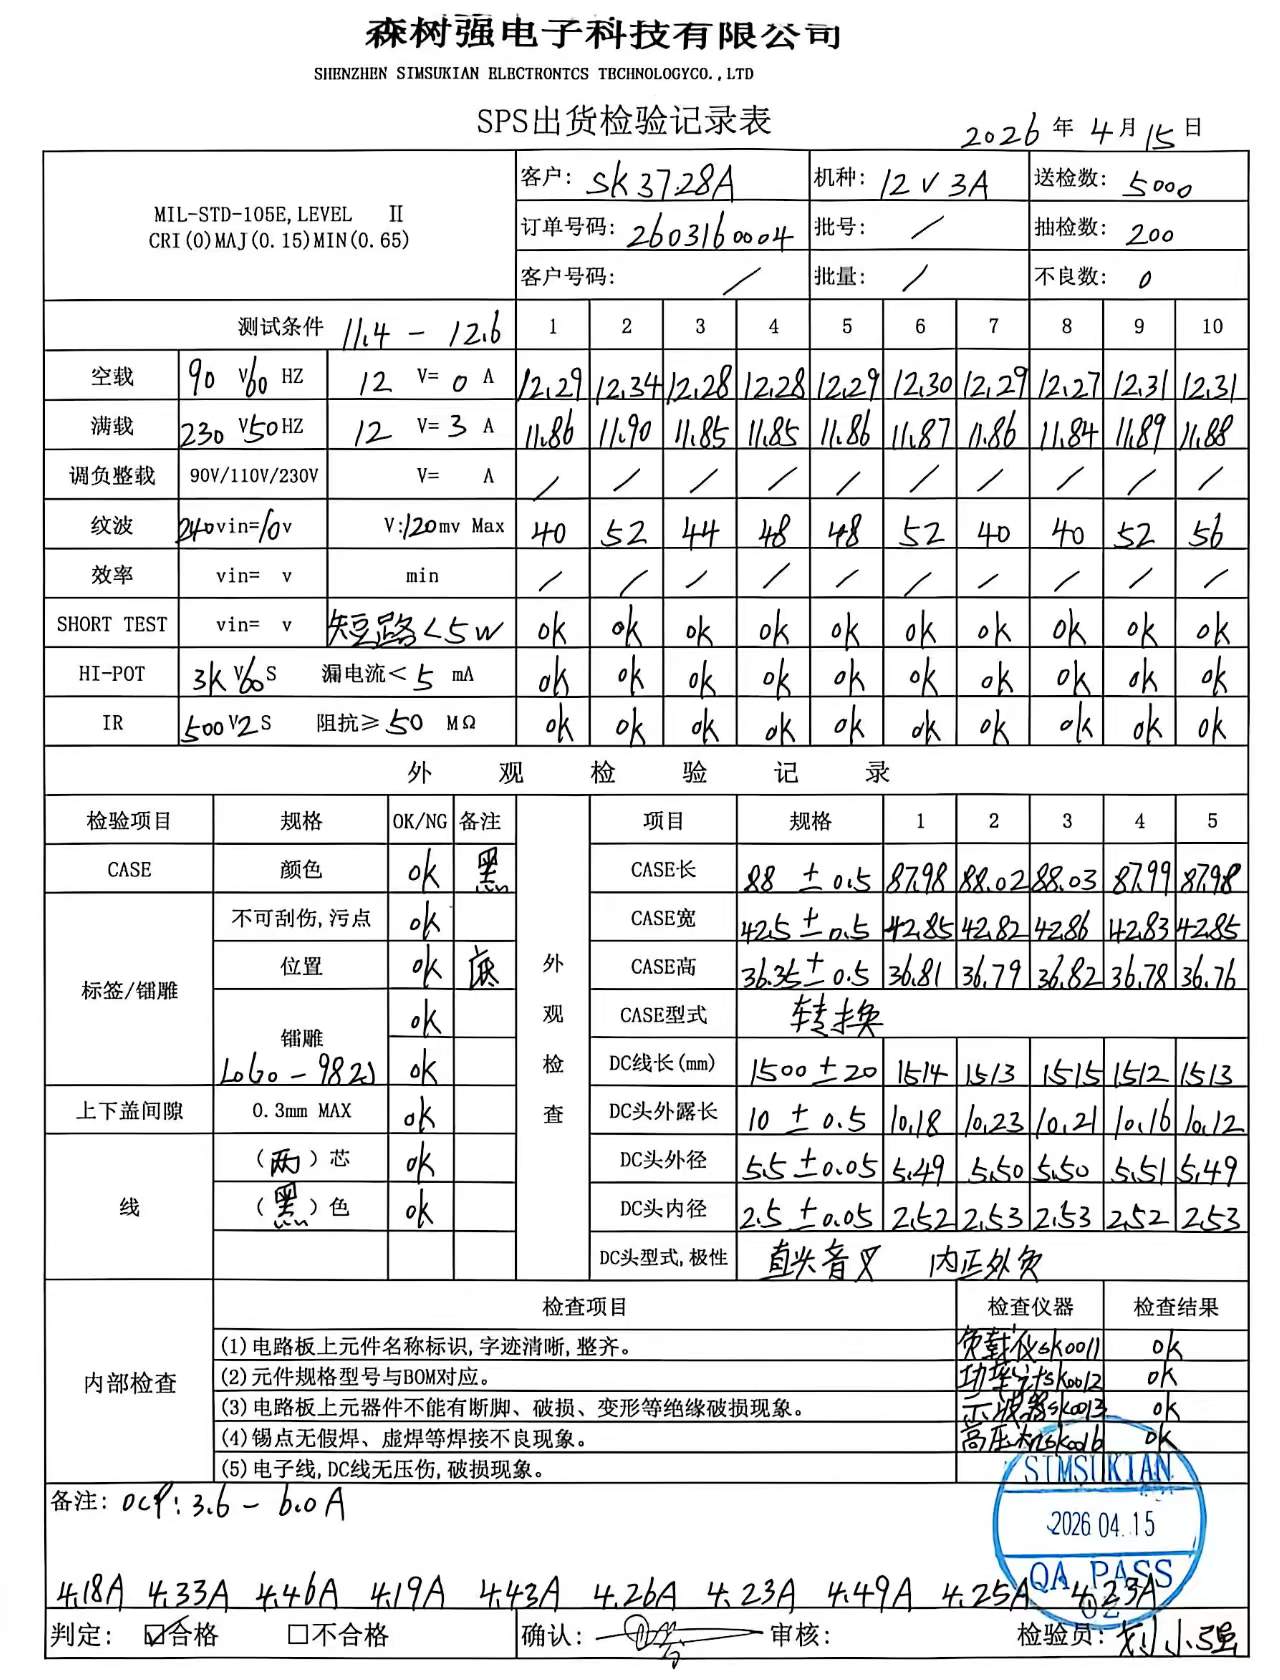 森树强电子科技有限公司
SHENZHEN SIMSUKIAN ELECTRONTCS TECHNOLOGYCO.,LTD
SPS出货检验记录表
2026 年 4 月 15 日
MIL-STD-105E,LEVEL II
CRI(0)MAJ(0.15)MIN(0.65)
客户: SK3728A 机种: 12V3A 送检数: 5000
订单号码: 2603160004 批号: / 抽检数: 200
客户号码: / 批量: / 不良数: 0
测试条件 11.4 - 12.6 1 2 3 4 5 6 7 8 9 10
空载 90 V 60 HZ 12 V= 0 A 12.29 12.34 12.28 12.28 12.29 12.30 12.29 12.27 12.31 12.31
满载 230 V 50 HZ 12 V= 3 A 11.86 11.90 11.85 11.85 11.86 11.87 11.86 11.84 11.89 11.88
调负整载 90V/110V/230V V= A / / / / / / / / / /
纹波 240vin=/0v V:120mv Max 40 52 44 48 48 52 40 40 52 56
效率 vin= v min / / / / / / / / / /
SHORT TEST vin= v 短路<5W ok ok ok ok ok ok ok ok ok ok
HI-POT 3K V 60 S 漏电流< 5 mA ok ok ok ok ok ok ok ok ok ok
IR 500 V 2 S 阻抗≥ 50 MΩ ok ok ok ok ok ok ok ok ok ok
外观检验记录
检验项目 规格 OK/NG 备注 项目 规格 1 2 3 4 5
CASE 颜色 ok 黑 CASE长 88 ±0.5 87.98 88.02 88.03 87.99 87.98
不可刮伤,污点 ok CASE宽 42.5±0.5 42.85 42.82 42.86 42.83 42.85
标签/镭雕 位置 ok 底 外观检查 CASE高 36.35±0.5 36.81 36.79 36.82 36.78 36.76
镭雕 ok CASE型式 转换
LoGo - 982 ok DC线长(mm) 1500±20 1514 1513 1515 1512 1513
上下盖间隙 0.3mm MAX ok DC头外露长 10 ±0.5 10.18 10.23 10.21 10.16 10.12
线 (两)芯 ok DC头外径 5.5±0.05 5.49 5.50 5.50 5.51 5.49
(黑)色 ok DC头内径 2.5±0.05 2.52 2.53 2.53 2.52 2.53
DC头型式,极性 直头音叉 内正外负
内部检查 检查项目 检查仪器 检查结果
(1)电路板上元件名称标识,字迹清晰,整齐。 负载仪sk0011 ok
(2)元件规格型号与BOM对应。 功率计sk0012 ok
(3)电路板上元器件不能有断脚、破损、变形等绝缘破损现象。 示波器sk0013 ok
(4)锡点无假焊、虚焊等焊接不良现象。 高压机sk0016 ok
(5)电子线,DC线无压伤,破损现象。
SIMSUKIAN
2026 04.15
QA PASS
02
备注: OCP: 3.6 - 6.0A
4.18A 4.33A 4.46A 4.19A 4.43A 4.26A 4.23A 4.49A 4.25A 4.23A
判定: ☑合格 □不合格 确认: 审核: 检验员: 刘小强